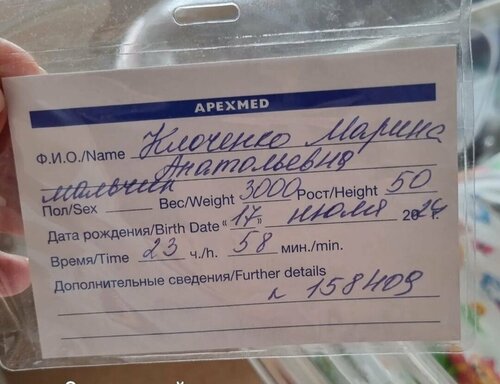 APEXMED
Ф.И.О./Name Клоченко Марина
Анатольевна
мальчик
Пол/Sex Вес/Weight 3000 Рост/Height 50
Дата рождения/Birth Date "17" июля 2024
Время/Time 23 ч./h. 58 мин./min.
Дополнительные сведения/Further details
158409